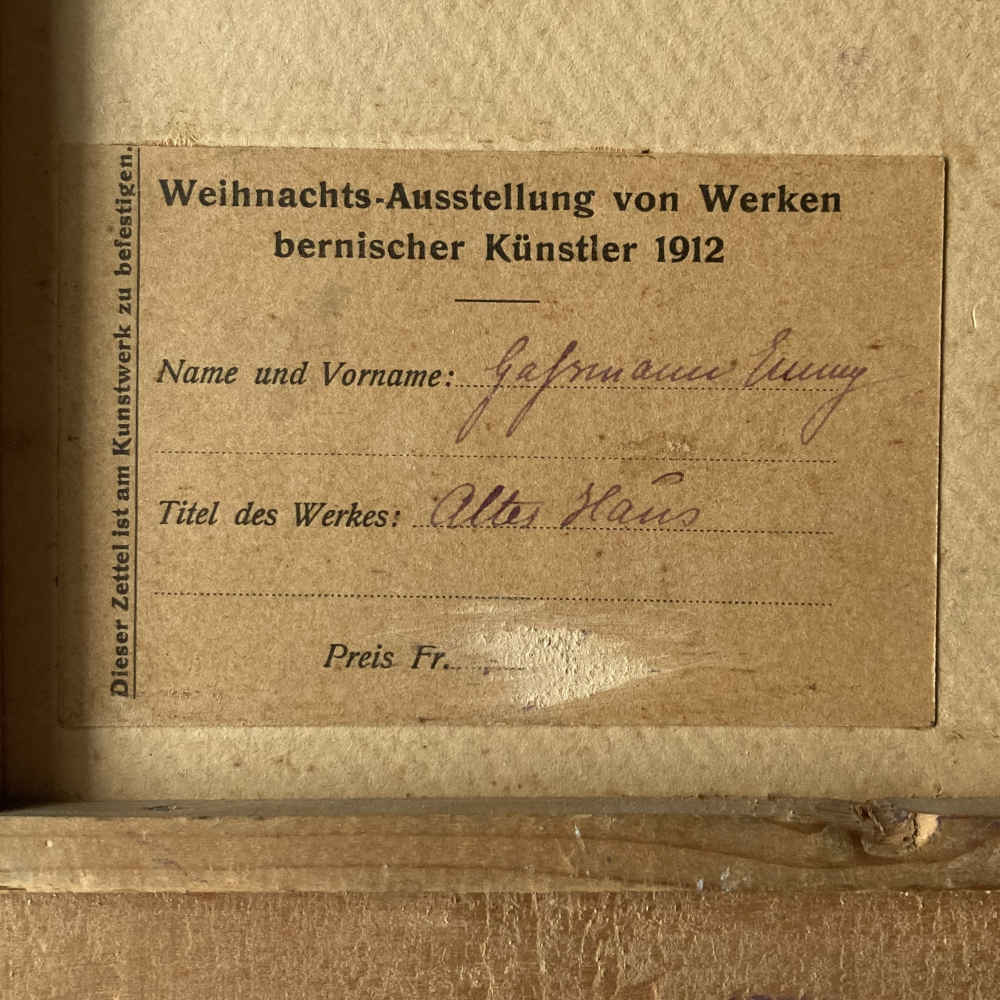 Weihnachts-Ausstellung von Werken
bernischer Künstler 1912
Name und Vorname: Gaſsmann Emmy
Titel des Werkes: Altes Haus
Preis Fr.
Dieser Zettel ist am Kunstwerk zu befestigen.